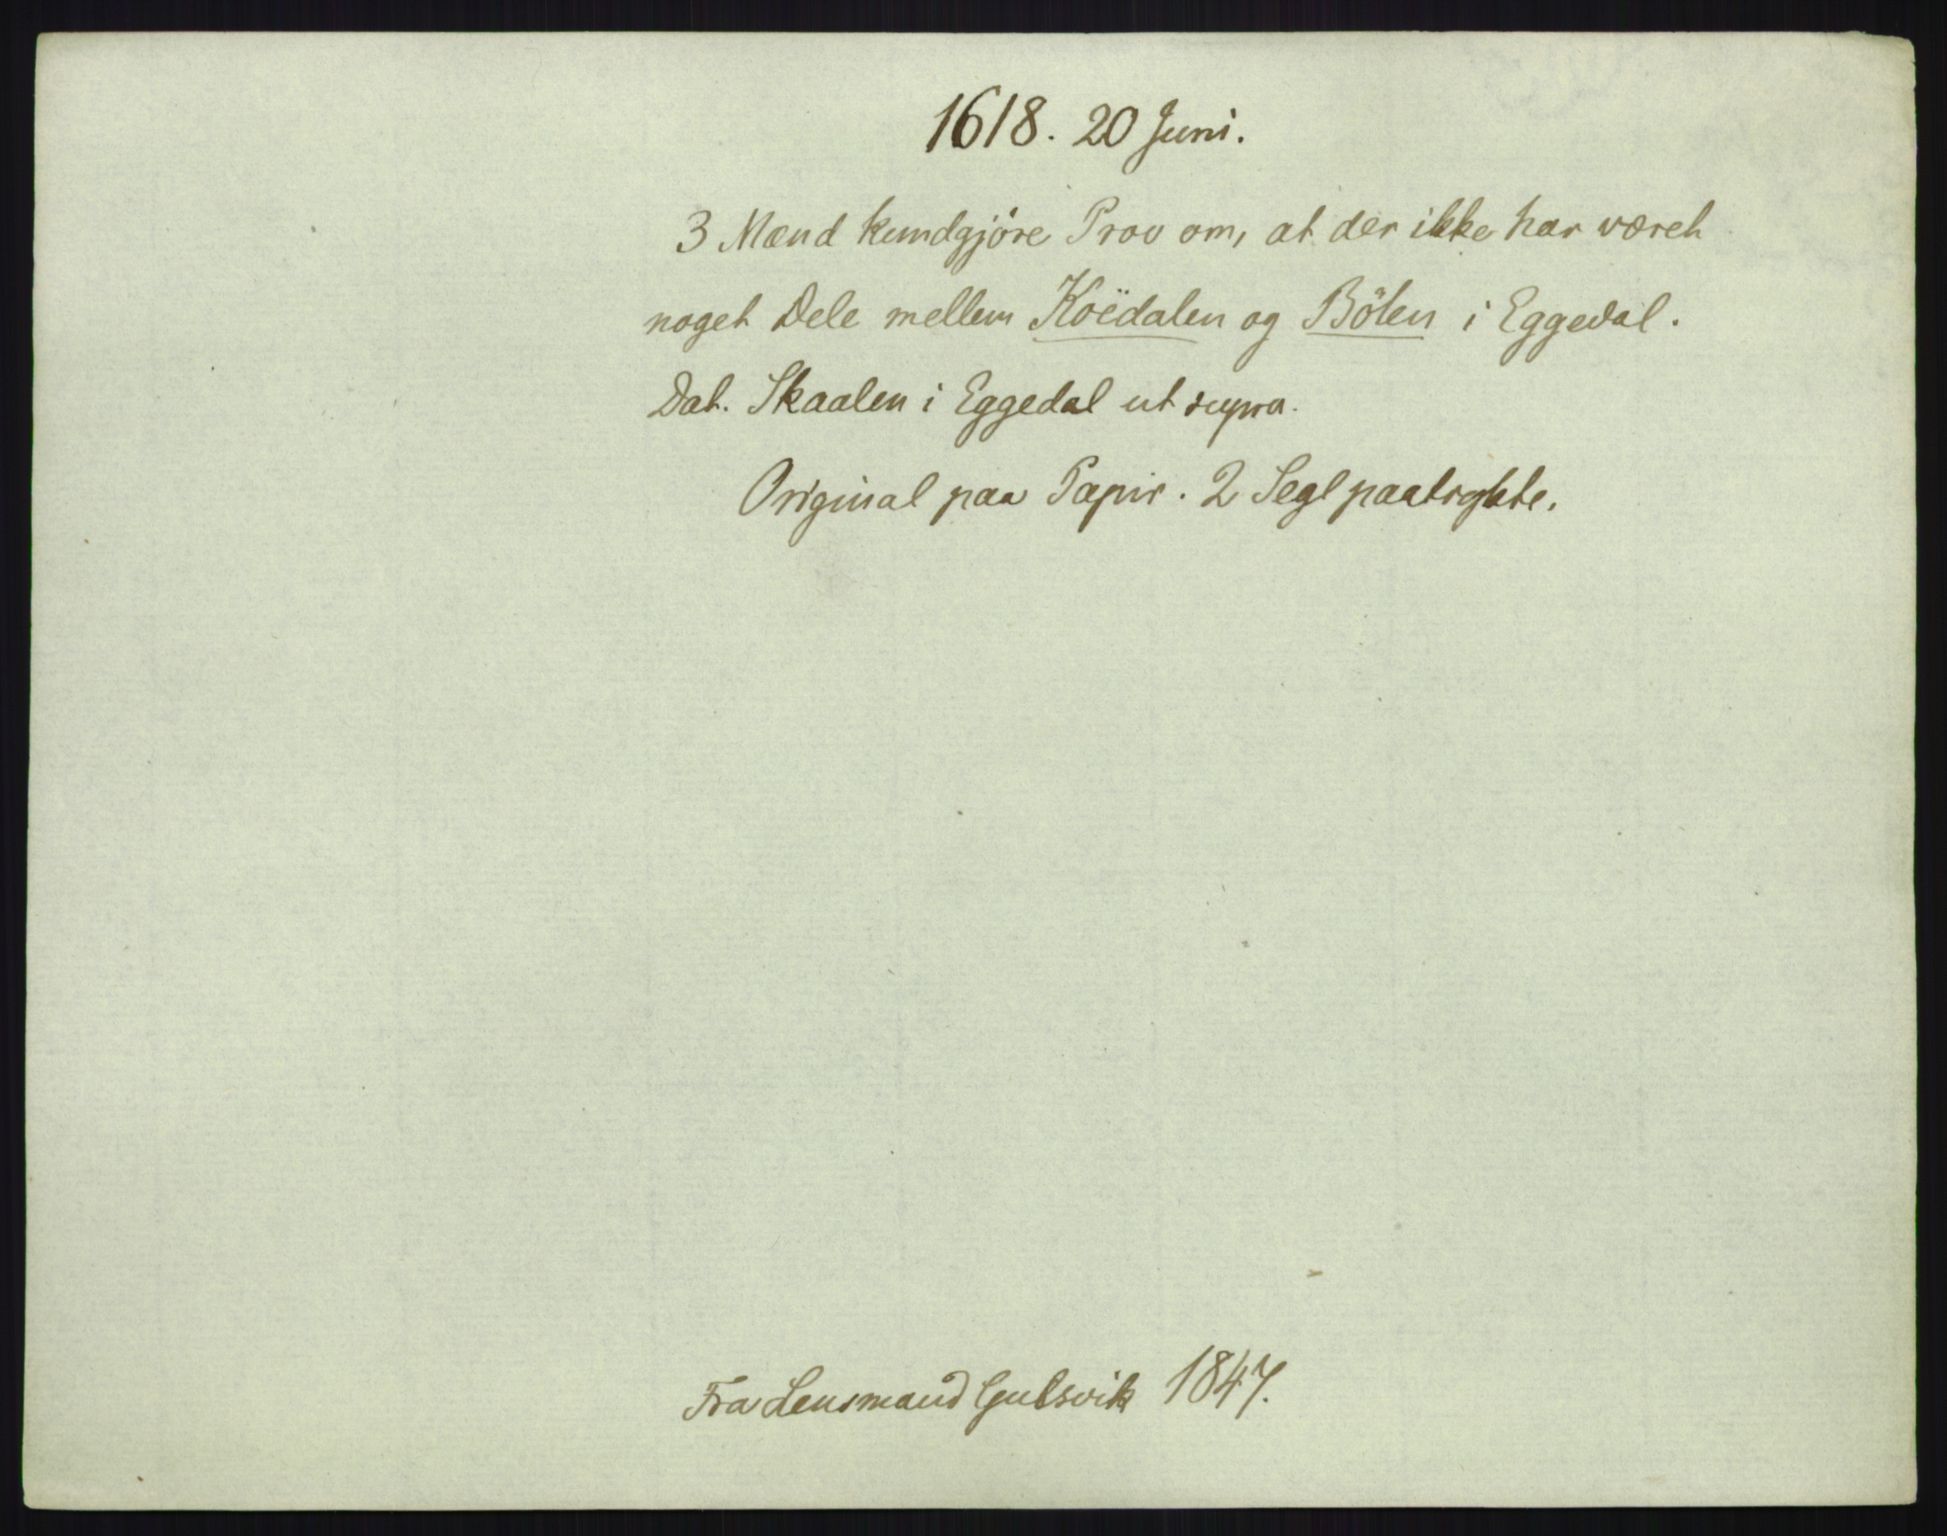 1618. 20 Juni.
3 Mænd kundgjöre Prov om, at der ikke har været
noget Dele mellem Koëdalen og Bölen i Eggedal.
Dat. Skaalen i Eggedal ut supra.
Original paa Papir. 2 Segl paatrykte.
Fra Lensmand Gulsvik 1847.